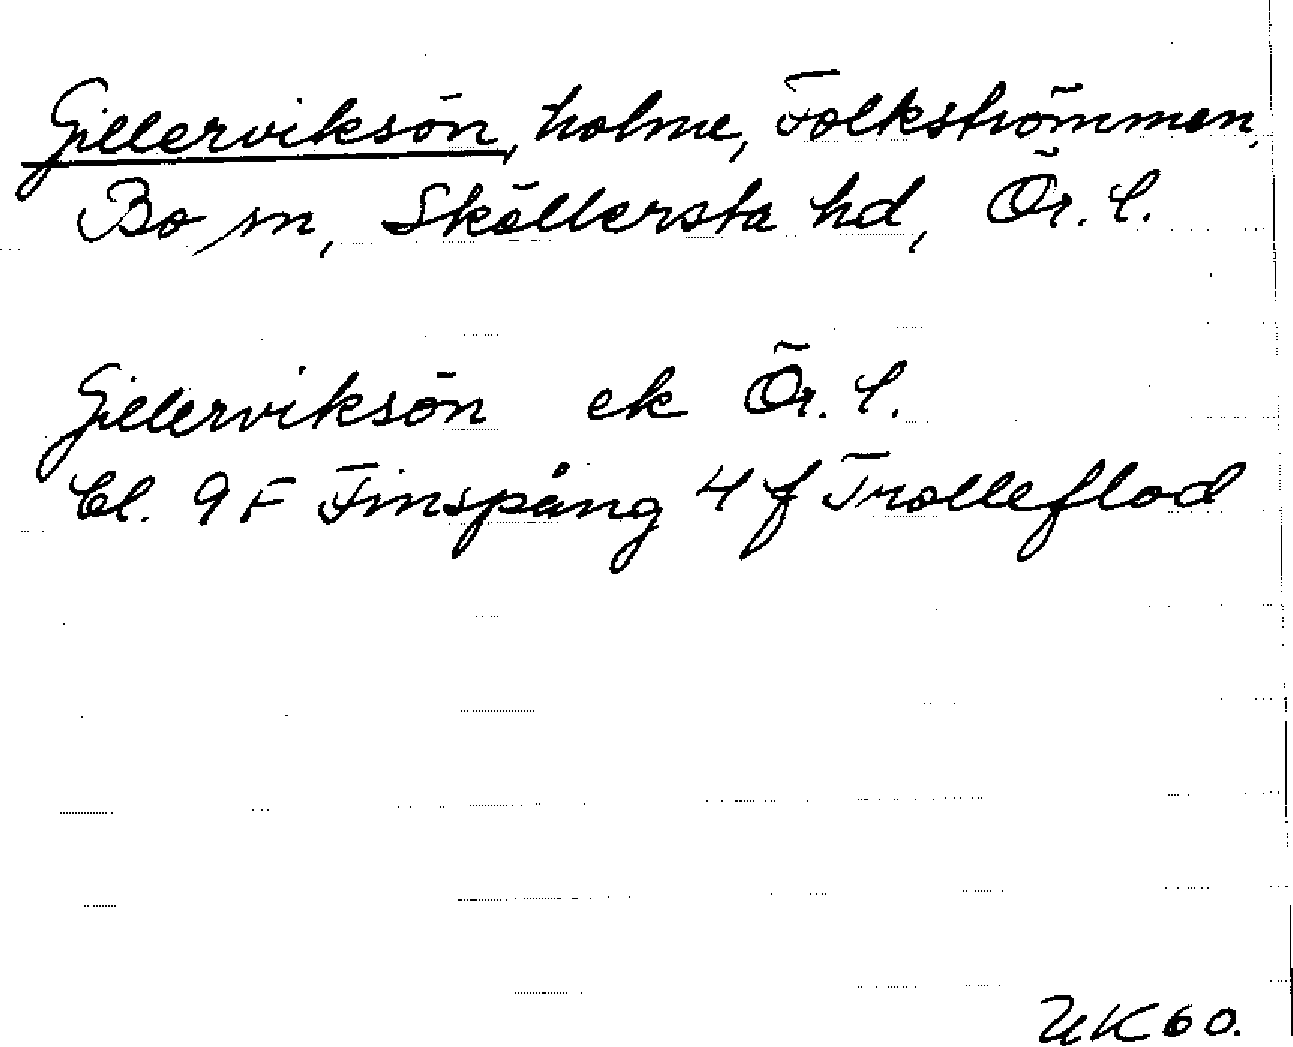 Gillerviksön, holme, Folkströmmen,
Bo sn, Sköllersta hd, Ör. l.
Gillerviksön ek Ör. l.
bl. 9 F Finspång 4 f Trolleflod
UK 60.